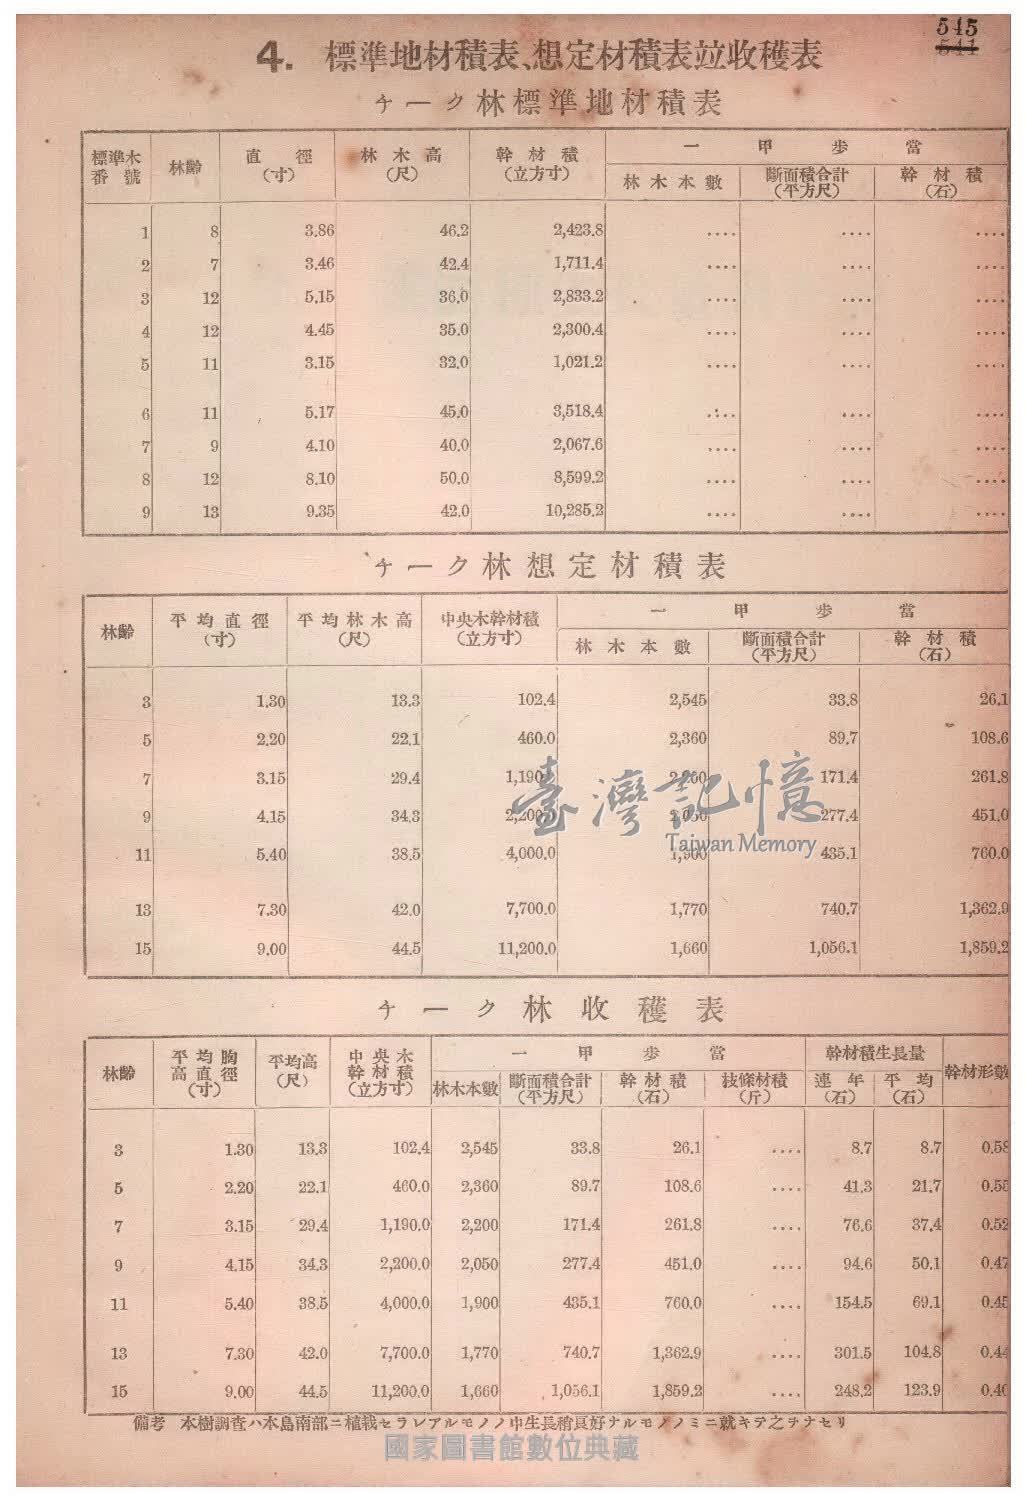 545
541
4. 標準地材積表、想定材積表竝收穫表
チーク林標準地材積表
標準木番號 林齡 直徑(寸) 林木高(尺) 幹材積(立方寸) 一甲步當
林木本數 斷面積合計(平方尺) 幹材積(石)
1 8 3.86 46.2 2,423.8 .... .... ....
2 7 3.46 42.4 1,711.4 .... .... ....
3 12 5.15 36.0 2,833.2 .... .... ....
4 12 4.45 35.0 2,300.4 .... .... ....
5 11 3.15 32.0 1,021.2 .... .... ....
6 11 5.17 45.0 3,518.4 .... .... ....
7 9 4.10 40.0 2,067.6 .... .... ....
8 12 8.10 50.0 8,599.2 .... .... ....
9 13 9.35 42.0 10,285.2 .... .... ....
チーク林想定材積表
林齡 平均直徑(寸) 平均林木高(尺) 中央木幹材積(立方寸) 一甲步當
林木本數 斷面積合計(平方尺) 幹材積(石)
3 1.30 13.3 102.4 2,545 33.8 26.1
5 2.20 22.1 460.0 2,360 89.7 108.6
7 3.15 29.4 1,190.0 2,200 171.4 261.8
9 4.15 34.3 2,200.0 2,050 277.4 451.0
11 5.40 38.5 4,000.0 1,900 435.1 760.0
13 7.30 42.0 7,700.0 1,770 740.7 1,362.9
15 9.00 44.5 11,200.0 1,660 1,056.1 1,859.2
臺灣記憶
Taiwan Memory
チーク林收穫表
林齡 平均胸高直徑(寸) 平均高(尺) 中央木幹材積(立方寸) 一甲步當 幹材積生長量 幹材形數
林木本數 斷面積合計(平方尺) 幹材積(石) 枝條材積(斤) 連年(石) 平均(石)
3 1.30 13.3 102.4 2,545 33.8 26.1 .... 8.7 8.7 0.58
5 2.20 22.1 460.0 2,360 89.7 108.6 .... 41.3 21.7 0.55
7 3.15 29.4 1,190.0 2,200 171.4 261.8 .... 76.6 37.4 0.52
9 4.15 34.3 2,200.0 2,050 277.4 451.0 .... 94.6 50.1 0.47
11 5.40 38.5 4,000.0 1,900 435.1 760.0 .... 154.5 69.1 0.45
13 7.30 42.0 7,700.0 1,770 740.7 1,362.9 .... 301.5 104.8 0.44
15 9.00 44.5 11,200.0 1,660 1,056.1 1,859.2 .... 248.2 123.9 0.40
備考 本樹調査ハ本島南部ニ植栽セラレアルモノノ中生長稍良好ナルモノノミニ就キテ之ヲナセリ
國家圖書館數位典藏